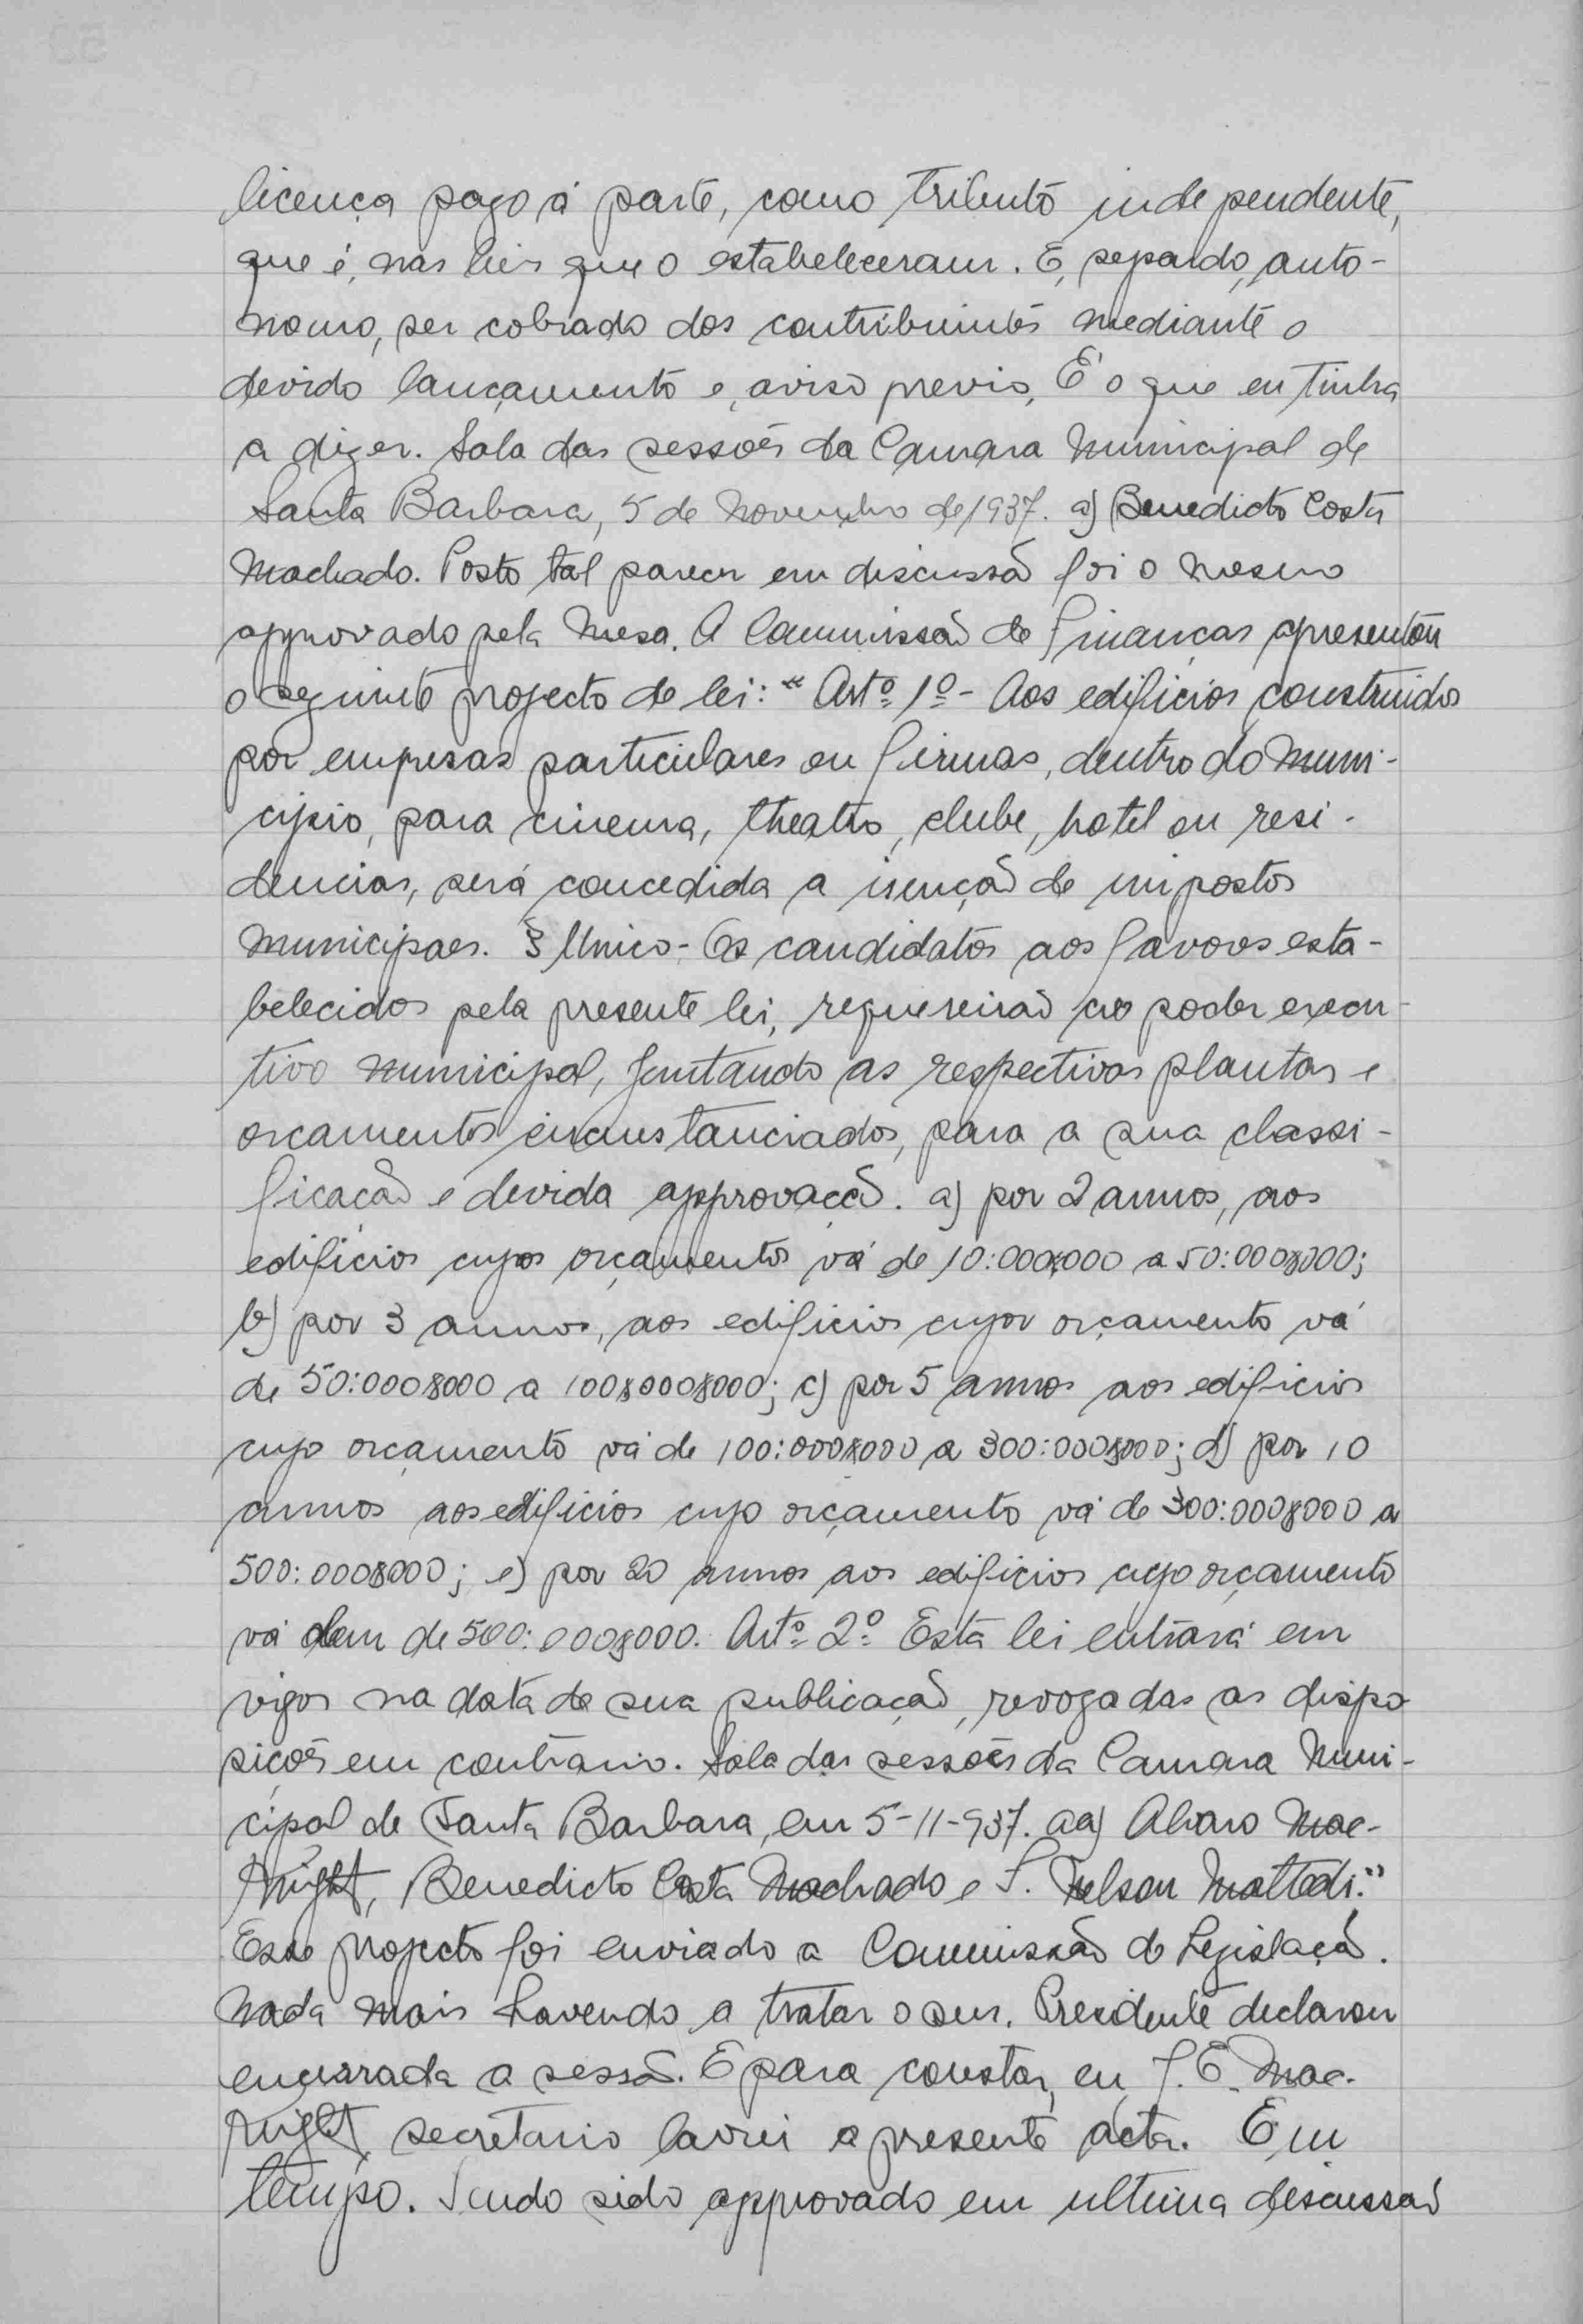 licença pago á parte, como tributo independente,
que é, nas leis que o estabeleceram. E, separado, auto-
nomo, ser cobrado dos contribuintes mediante o
devido lançamento e, aviso previo, É o que eu tinha
a dizer. Sala das sessões da Camara Municipal de
Santa Barbara, 5 de Novembro de 1937. a) Benedicto Costa
Machado. Posto tal parecer em discussão foi o mesmo
approvado pela Mesa. A Commissão de Finanças apresentou
o seguinte projecto de lei: "Artº 1º - Aos edificios construidos
por empresas particulares ou firmas, dentro do Muni-
cipio, para cinema, theatro, clube, hotel ou resi-
dencias, será concedida a isenção de impostos
Municipaes. § Unico - Os candidatos aos favores esta-
belecidos pela presente lei, requereirão ao poder execu-
tivo municipal, juntando as respectivas plantas e
orcamentos circunstanciados, para a sua classi-
ficacão e devida approvacão. a) por 2 annos, aos
edificios cujos orçamentos vá de 10:000$000 a 50:000$000;
b) por 3 annos, aos edificios cujos orçamento vá
de 50:000$000 a 100$000$000; c) por 5 annos aos edificios
cujo orçamento vá de 100:000$000 a 300:000$000; d) por 10
annos aos edificios cujo orçamento vá de 300:000$000 a
500:000$000; e) por 20 annos aos edificios cujo orçamento
vá alem de 500:000$000. Artº 2º Esta lei entrará em
vigor na data de sua publicação, revogadas as dispo
sições em contrario. Sala das sessões da Camara Muni-
cipal de Santa Barbara, em 5-11-937. aa) Alvaro Mac-
Knight, Benedicto Costa Machado e S. Nelson Mattedi."
Esse projecto foi enviado a Commissão de Legislação.
Nada mais havendo a tratar o snr. Presidente declarou
encerrada a sessão. E para constar, eu J. E. Mac-
Knight, secretario lavrei a presente acta. Em
tempo. Sendo sido approvado em ultima discussão